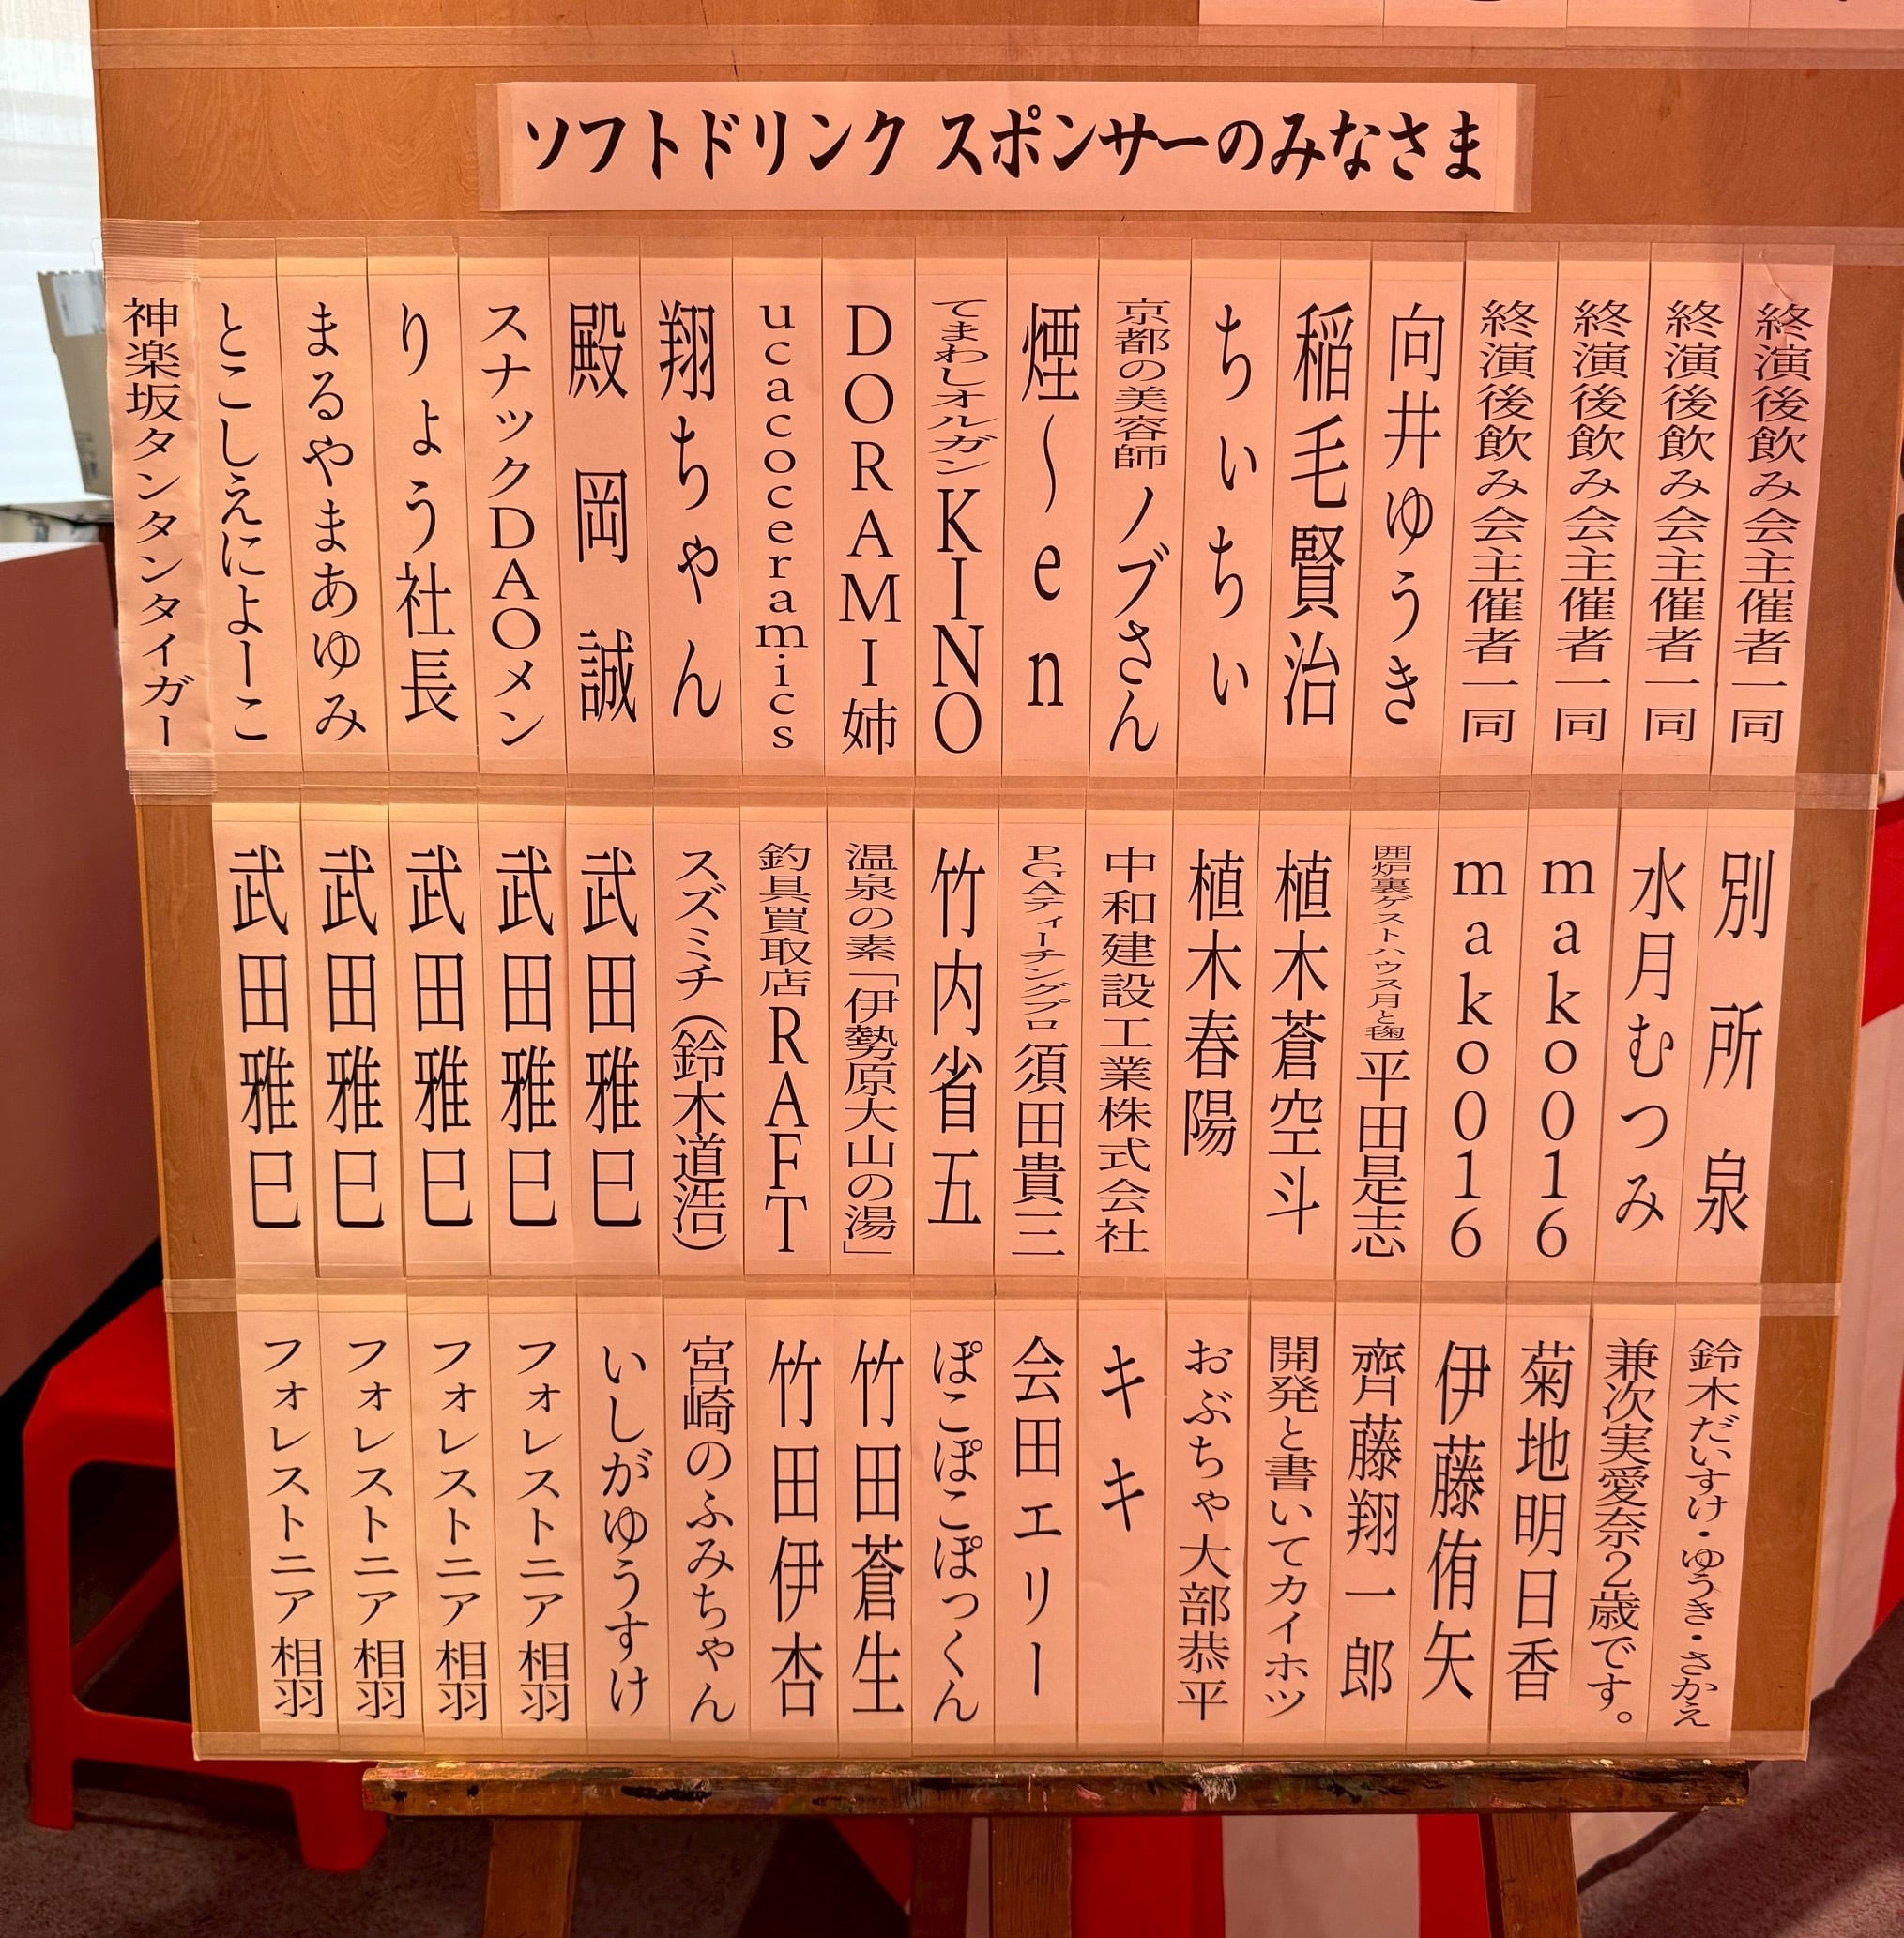 ソフトドリンク スポンサーのみなさま
終演後飲み会主催者一同
終演後飲み会主催者一同
終演後飲み会主催者一同
終演後飲み会主催者一同
向井ゆうき
稲毛賢治
ちぃちぃ
京都の美容師 ノブさん
煙〜en
てまわしオルガン KINO
DORAMI姉
ucacoceramics
翔ちゃん
殿岡誠
スナックDAOメン
りょう社長
まるやまあゆみ
とこしえによーこ
神楽坂タンタンタイガー
別所泉
水月むつみ
mako016
mako016
囲炉裏ゲストハウス月と麹 平田是志
植木蒼空斗
植木春陽
中和建設工業株式会社
PGAティーチングプロ 須田貴三
竹内省五
温泉の素「伊勢原大山の湯」
釣具買取店RAFT
スズミチ(鈴木道浩)
武田雅巳
武田雅巳
武田雅巳
武田雅巳
武田雅巳
鈴木だいすけ・ゆうき・さかえ
兼次実愛奈2歳です。
菊地明日香
伊藤侑矢
齊藤翔一郎
開発と書いてカイホツ
おぶちゃ大部恭平
キキ
会田エリー
ぽこぽこぽっくん
竹田蒼生
竹田伊杏
宮崎のふみちゃん
いしがゆうすけ
フォレストニア 相羽
フォレストニア 相羽
フォレストニア 相羽
フォレストニア 相羽